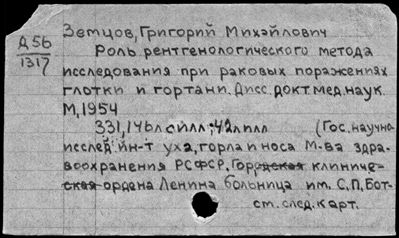 Земцов, Григорий Михайлович
Д 56
1317
Роль рентгенологического метода
исследования при раковых поражениях
глотки и гортани. Дисс. докт. мед. наук.
М, 1954
331, 146л с илл; 42л илл (Гос. научно
исслед. ин-т уха, горла и носа М-ва здра-
воохранения РСФСР, Городская клиниче-
ская ордена Ленина больница им. С, П, Бот-
ст. след. карт.